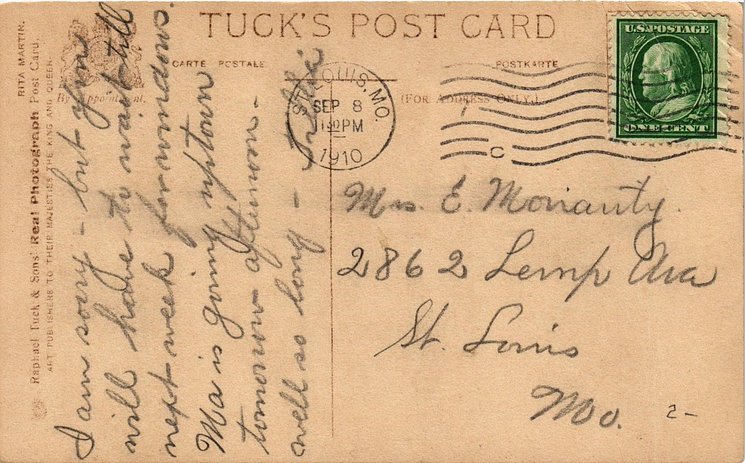 TUCK'S POST CARD
CARTE POSTALE
POSTKARTE
By Appointment.
(FOR ADDRESS ONLY.)
RITA MARTIN.
Raphael Tuck & Sons' Real Photograph Post Card.
ART PUBLISHERS TO THEIR MAJESTIES THE KING AND QUEEN.
I am sorry - but you
will have to wait till
next week for windows.
Ma is going uptown
tomorrow afternoon -
well so long -
ST. LOUIS, MO.
SEP 8
PM
1910
C
U.S. POSTAGE
ONE CENT
Mrs. E. Moriarity.
2862 Lemp Ava
St. Louis
Mo.
2-